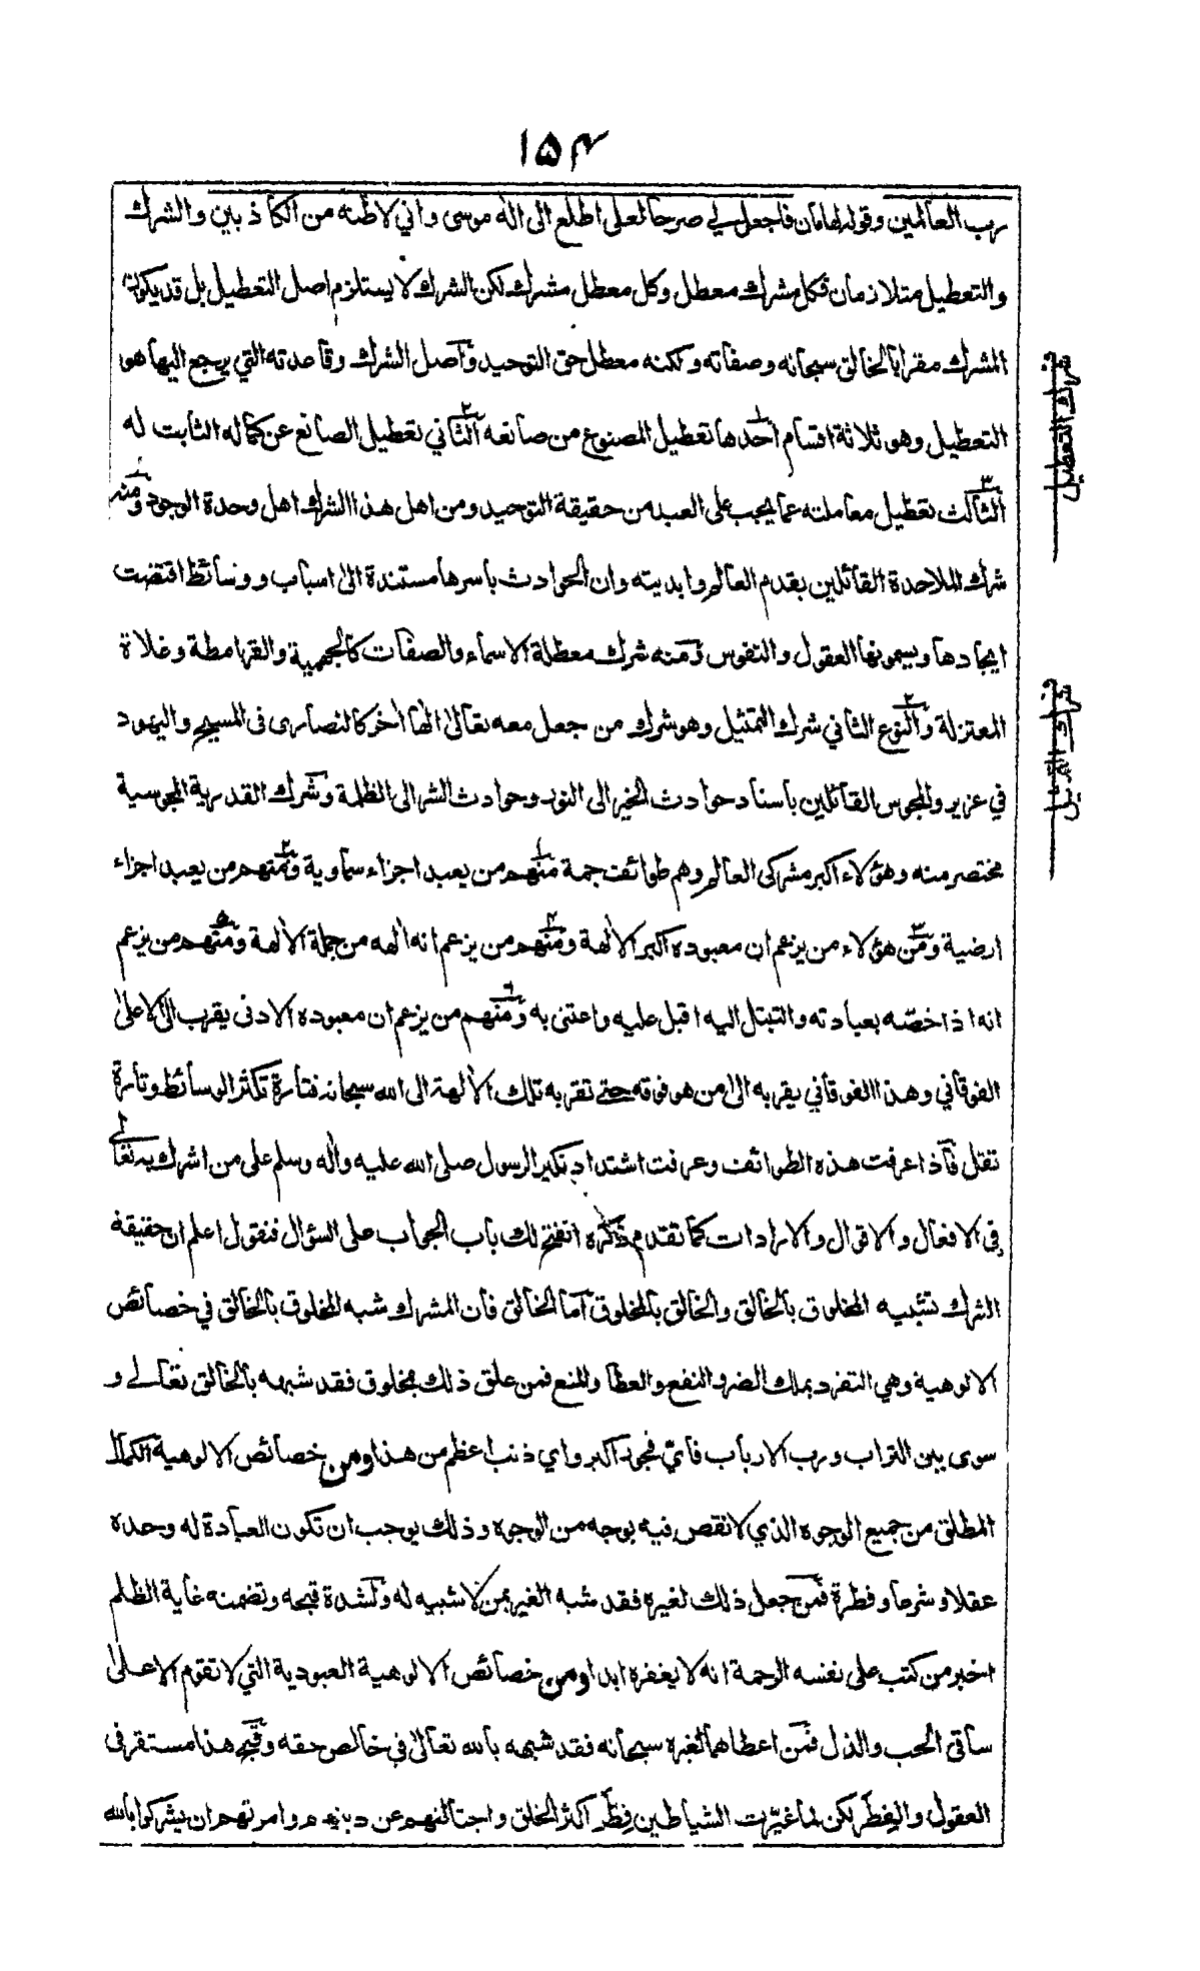 ١٥٤
رب العالمين وقوله لهامان فاجعل لي صرحا لعلى اطلع الى اله موسى واني لاظنه من الكاذبين والشرك
والتعطيل متلازمان فكل مشرك معطل وكل معطل مشرك لكن الشرك لا يستلزم اصل التعطيل بل قد يكون
المشرك مقرا بالخالق سبحانه وصفاته ولكنه معطل حق التوحيد وآصل الشرك وقاعدته التي يرجع اليها هو
التعطيل وهو ثلاثة اقسام احدها تعطيل المصنوع من صانعه الثاني تعطيل الصانع عن كماله الثابت له
الثالث تعطيل معاملته عما يجب على العبد من حقيقة التوحيد ومن اهل هذا الشرك اهل وحدة الوجود ومنه
شرك الملاحدة القائلين بقدم العالم وابديته وان الحوادث باسرها مستندة الى اسباب ووسائط اقتضت
ايجادها ويسمونها العقول والنفوس ومنه شرك معطلة الاسماء والصفات كالجهمية والقرامطة وغلاة
المعتزلة والنوع الثاني شرك التمثيل وهو شرك من جعل معه تعالى الها آخر كالنصارى في المسيح واليهود
في عزير والمجوس القائلين باسناد حوادث الخير الى النور وحوادث الشر الى الظلمة وشرك القدرية المجوسية
مختصر منه وهؤلاء اكبر مشركى العالم وهم طوائف جمة منهم من يعبد اجزاء سماوية ومنهم من يعبد اجزاء
ارضية ومن هؤلاء من يزعم ان معبوده اكبر الألهة ومنهم من يزعم انه اله من جملة الألهة ومنهم من يزعم
انه اذا خصه بعبادته والتبتل اليه اقبل عليه واعتنى به ومنهم من يزعم ان معبوده الادنى يقرب الى الاعلى
الفوقاني وهذا الفوقاني يقربه الى من هو فوقه حتى تقربه تلك الألهة الى الله سبحانه فتارة تكثر الوسائط وتارة
تقل فآذا عرفت هذه الطوائف وعرفت اشتداد نكير الرسول صلى الله عليه وآله وسلم على من اشرك به تعالى
في الافعال والاقوال والارادات كما تقدم ذكره انفتح لك باب الجواب على السؤال فنقول اعلم ان حقيقة
الشرك تشبيه المخلوق بالخالق والخالق بالمخلوق آما الخالق فان المشرك شبه المخلوق بالخالق في خصائص
الالوهية وهي التفرد بملك الضر والنفع والعطا والمنع فمن علق ذلك بمخلوق فقد شبهه بالخالق تعالى و
سوى بين التراب ورب الارباب فايّ فجور اكبر واي ذنب اعظم من هذا ومن خصائص الالوهية الكمال
المطلق من جميع الوجوه الذي لا نقص فيه بوجه من الوجوه وذلك يوجب ان تكون العبادة له وحده
عقلا وشرعا وفطرة فمن جعل ذلك لغيره فقد شبه الغير بمن لا شبيه له ولشدة قبحه وتضمنه غاية الظلم
اخبر من كتب على نفسه الرحمة انه لا يغفره ابدا ومن خصائص الالوهية العبودية التي لا تقوم الا على
ساقى الحب والذل فمن اعطاهما لغيره سبحانه فقد شبهه بالله تعالى في خالص حقه وقبح هذا مستقر في
العقول والفطر لكن لما غيّرت الشياطين فِطَر اكثر الخلق واجتالتهم عن دينهم وامرتهم ان يشركوا بالله
شرك التعطيل
شرك التمثيل